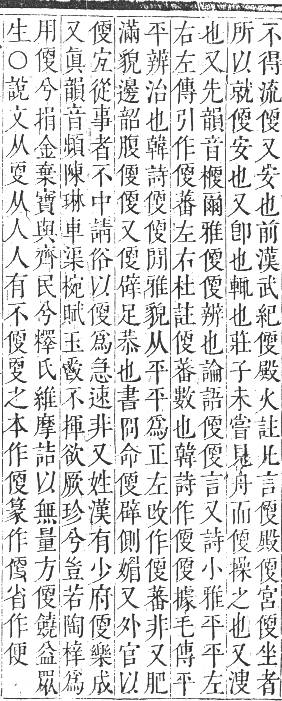 不得流㑮又安也前漢武紀㑮殿火註凡言㑮殿㑮宮㑮坐者
所以就㑮安也又卽也輒也莊子未嘗見舟而㑮操之也又溲
也又先韻音楩爾雅㑮㑮辨也論語㑮㑮言又詩小雅平平左
右左傳引作㑮蕃左右杜註㑮蕃數也韓詩作㑮㑮據毛傳平
平辨治也韓詩㑮㑮閒雅貌从平平爲正左改作㑮蕃非又肥
滿貌邊韶腹㑮㑮又㑮辟足恭也書冏命㑮辟側媚又外官以
㑮宐從事者不中請俗以㑮爲急速非又姓漢有少府㑮樂成
又眞韻音頻陳琳車渠椀賦玉爵不揮欲厥珍兮豈若陶梓爲
用㑮兮捐金棄寶與齊民兮釋氏維摩詰以無量方㑮饒益眾
生○說文从㪅从人人有不㑮㪅之本作㑮篆作㑮省作便